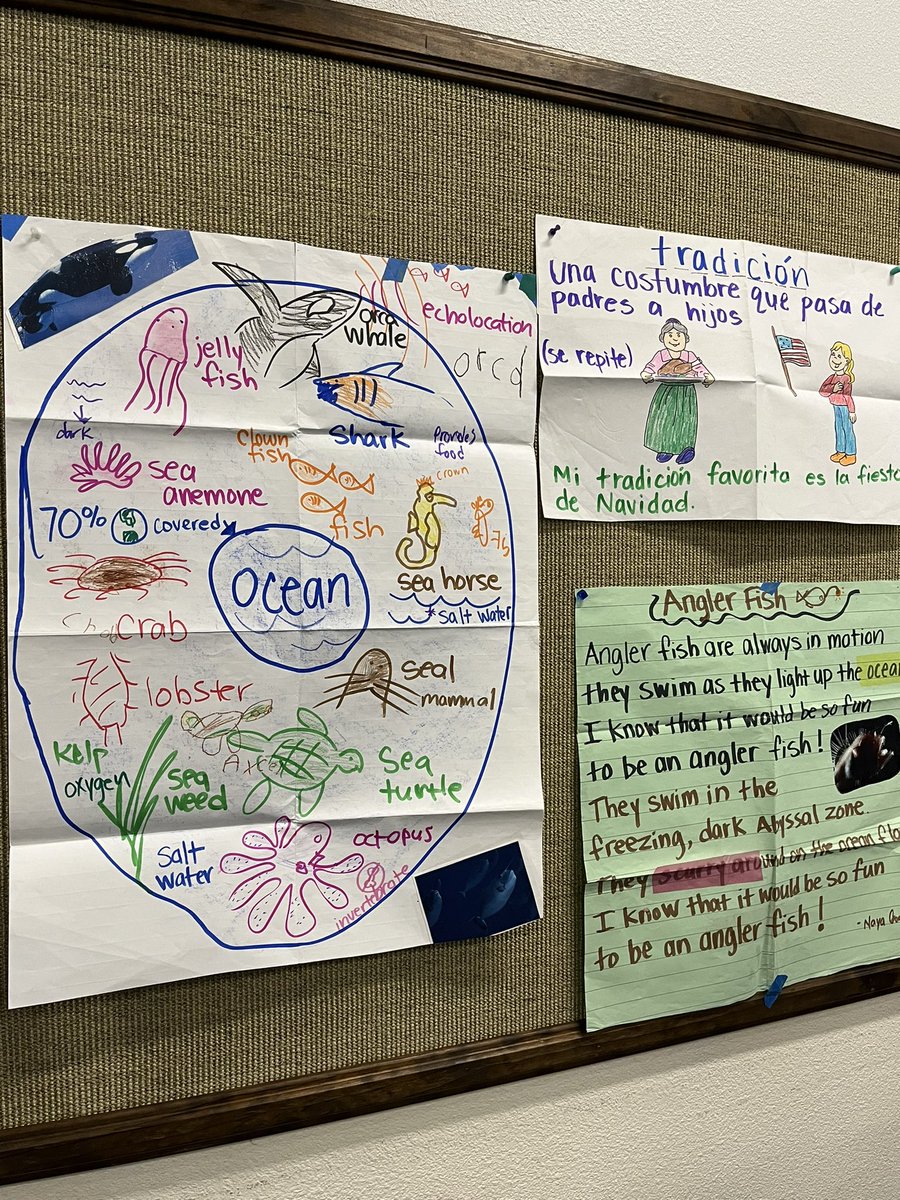 orca
whale
echolocation
orca
jelly
fish
dark
shark
Provides
food
clown
fish
crown
sea
anemone
fish
70% covered
sea horse
salt water
ocean
crab
seal
mammal
lobster
kelp
oxygen
sea
weed
sea
turtle
salt
water
octopus
invertebrate
tradición
una costumbre que pasa de
padres a hijos
(se repite)
Mi tradición favorita es la fiesta
de Navidad.
Angler Fish
Angler fish are always in motion
they swim as they light up the ocean
I know that it would be so fun
to be an angler fish!
They swim in the
freezing, dark Abyssal zone.
They scurry around on the ocean
I know that it would be so fun
to be an angler fish!